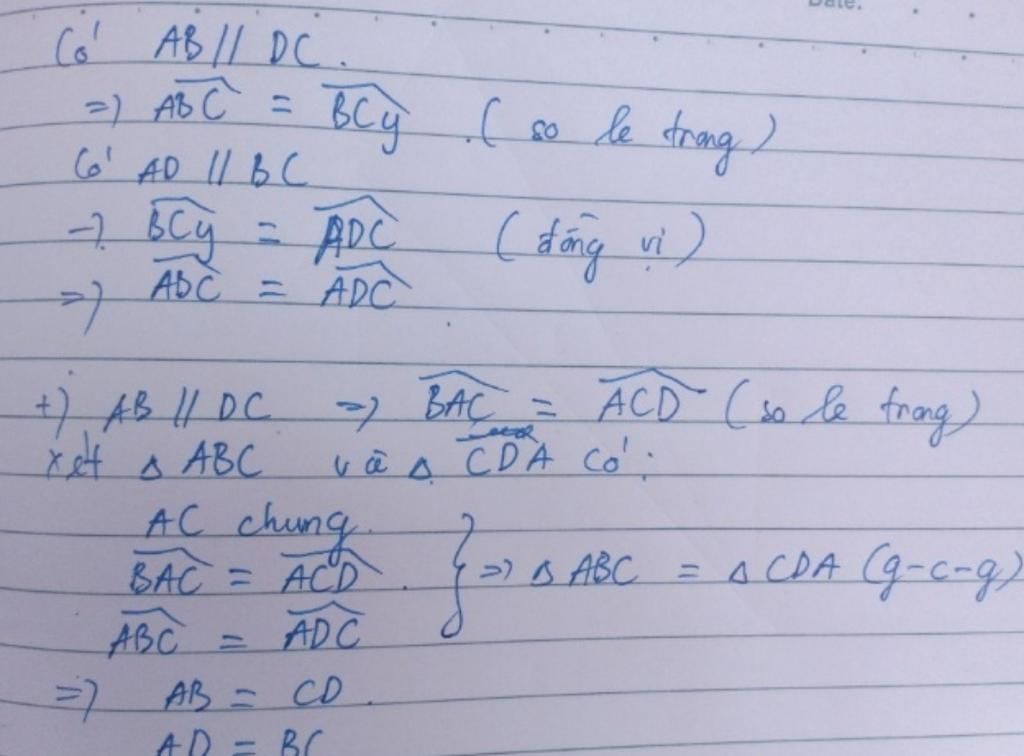 Date:
Có AB // DC.
=> ABC = BCy (so le trong)
Có AD // BC
-> BCy = ADC (đồng vị)
=> ABC = ADC
+) AB // DC => BAC = ACD (so le trong)
xét △ ABC và △ CDA có:
AC chung.
BAC = ACD } => △ ABC = △ CDA (g-c-g)
ABC = ADC
=> AB = CD.
AD = BC